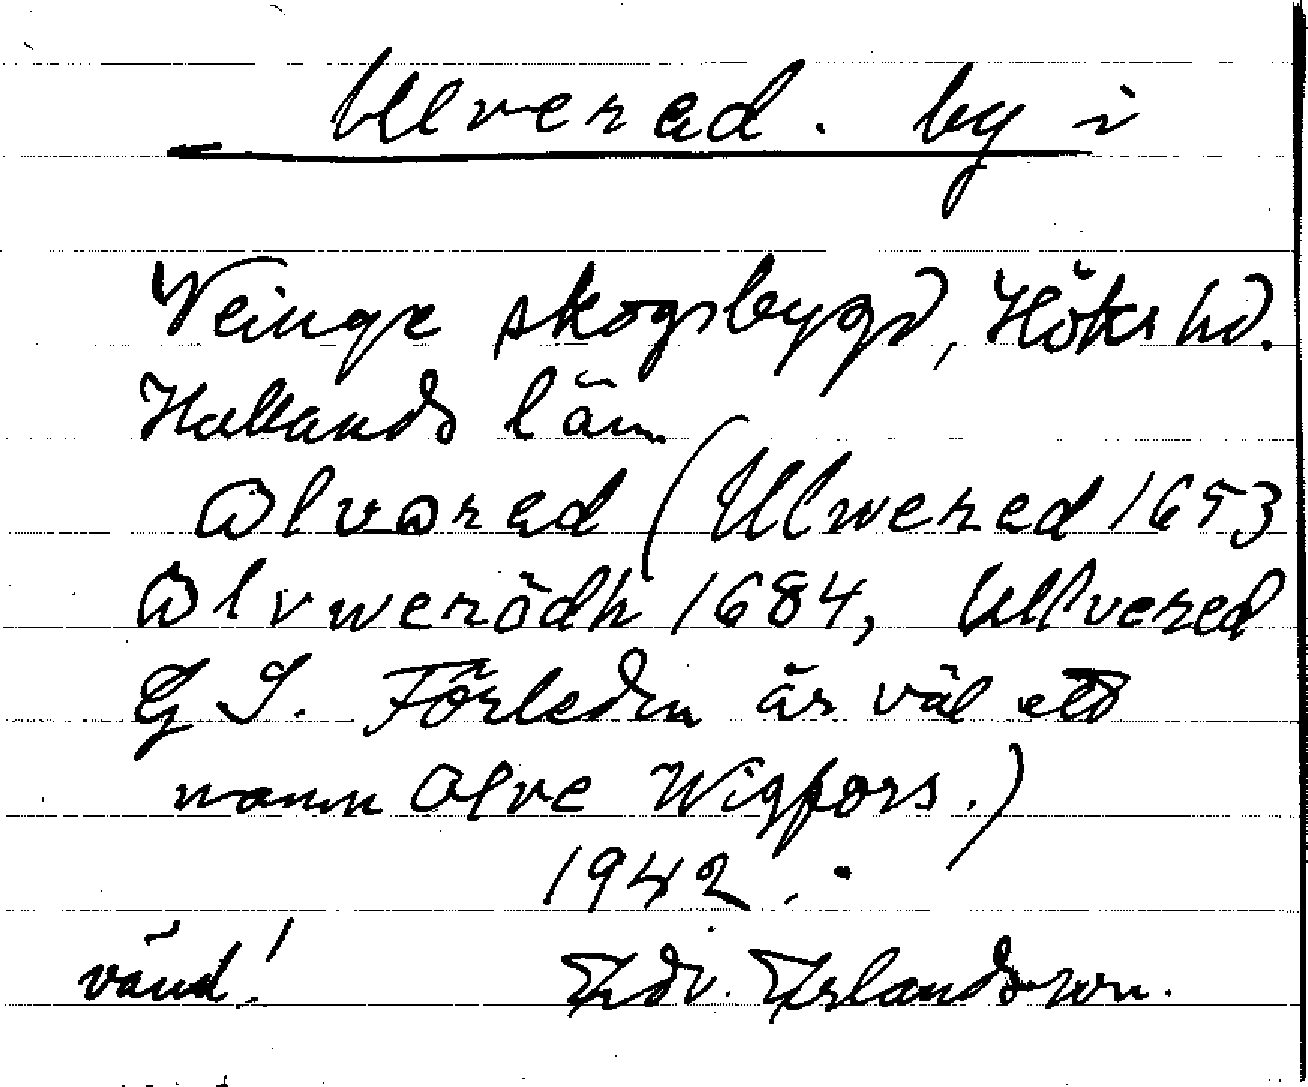 Ulvered. by i
Veinge skogsbygd, Höks hd.
Hallands län
Olvored (Ulwered 1653
Olvwerödh 1684, Ullvered
G S. Förleden är väl ett
mann Olve Wigfors.)
1942.
vänd! Edv. Erlandsson.